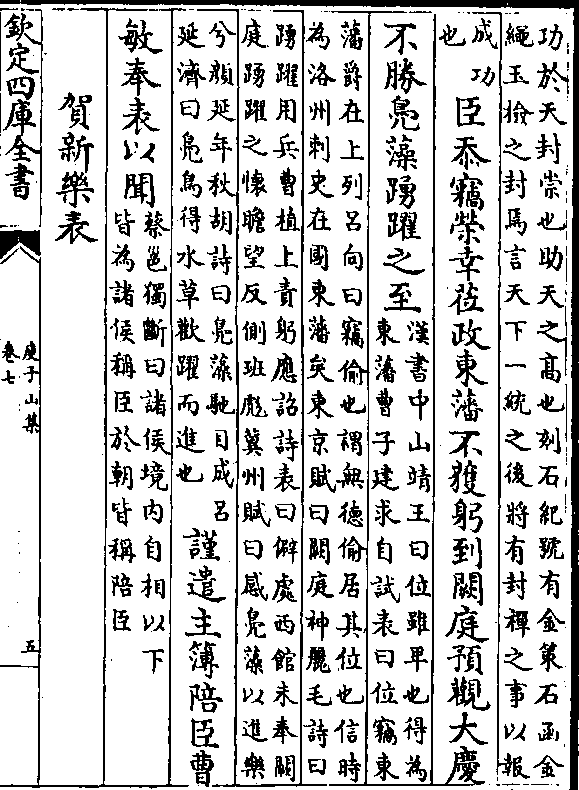 功於天封崇也助天之高也刻石紀號有金策石函金
繩玉檢之封焉言天下一統之後將有封禪之事以報
成功
也
臣忝竊榮幸莅政東藩不獲躬到闕庭預觀大慶
不勝鳧藻踴躍之至
漢書中山靖王曰位雖卑也得為
東藩曹子建求自試表曰位竊東
藩爵在上列呂向曰竊偷也謂無德偷居其位也信時
為洛州刺史在國東藩矣東京賦曰闕庭神麗毛詩曰
踴躍用兵曹植上責躬應詔詩表曰僻處西館未奉闕
庭踴躍之懷瞻望反側班彪冀州賦曰感鳧藻以進樂
兮顔延年秋胡詩曰鳧藻馳目成呂
延濟曰鳧鳥得水草歡躍而進也
謹遣主簿陪臣曹
敏奉表以聞
蔡邕獨斷曰諸侯境内自相以下
皆為諸侯稱臣於朝皆稱陪臣
賀新樂表
欽定四庫全書
庾子山集
卷七
五